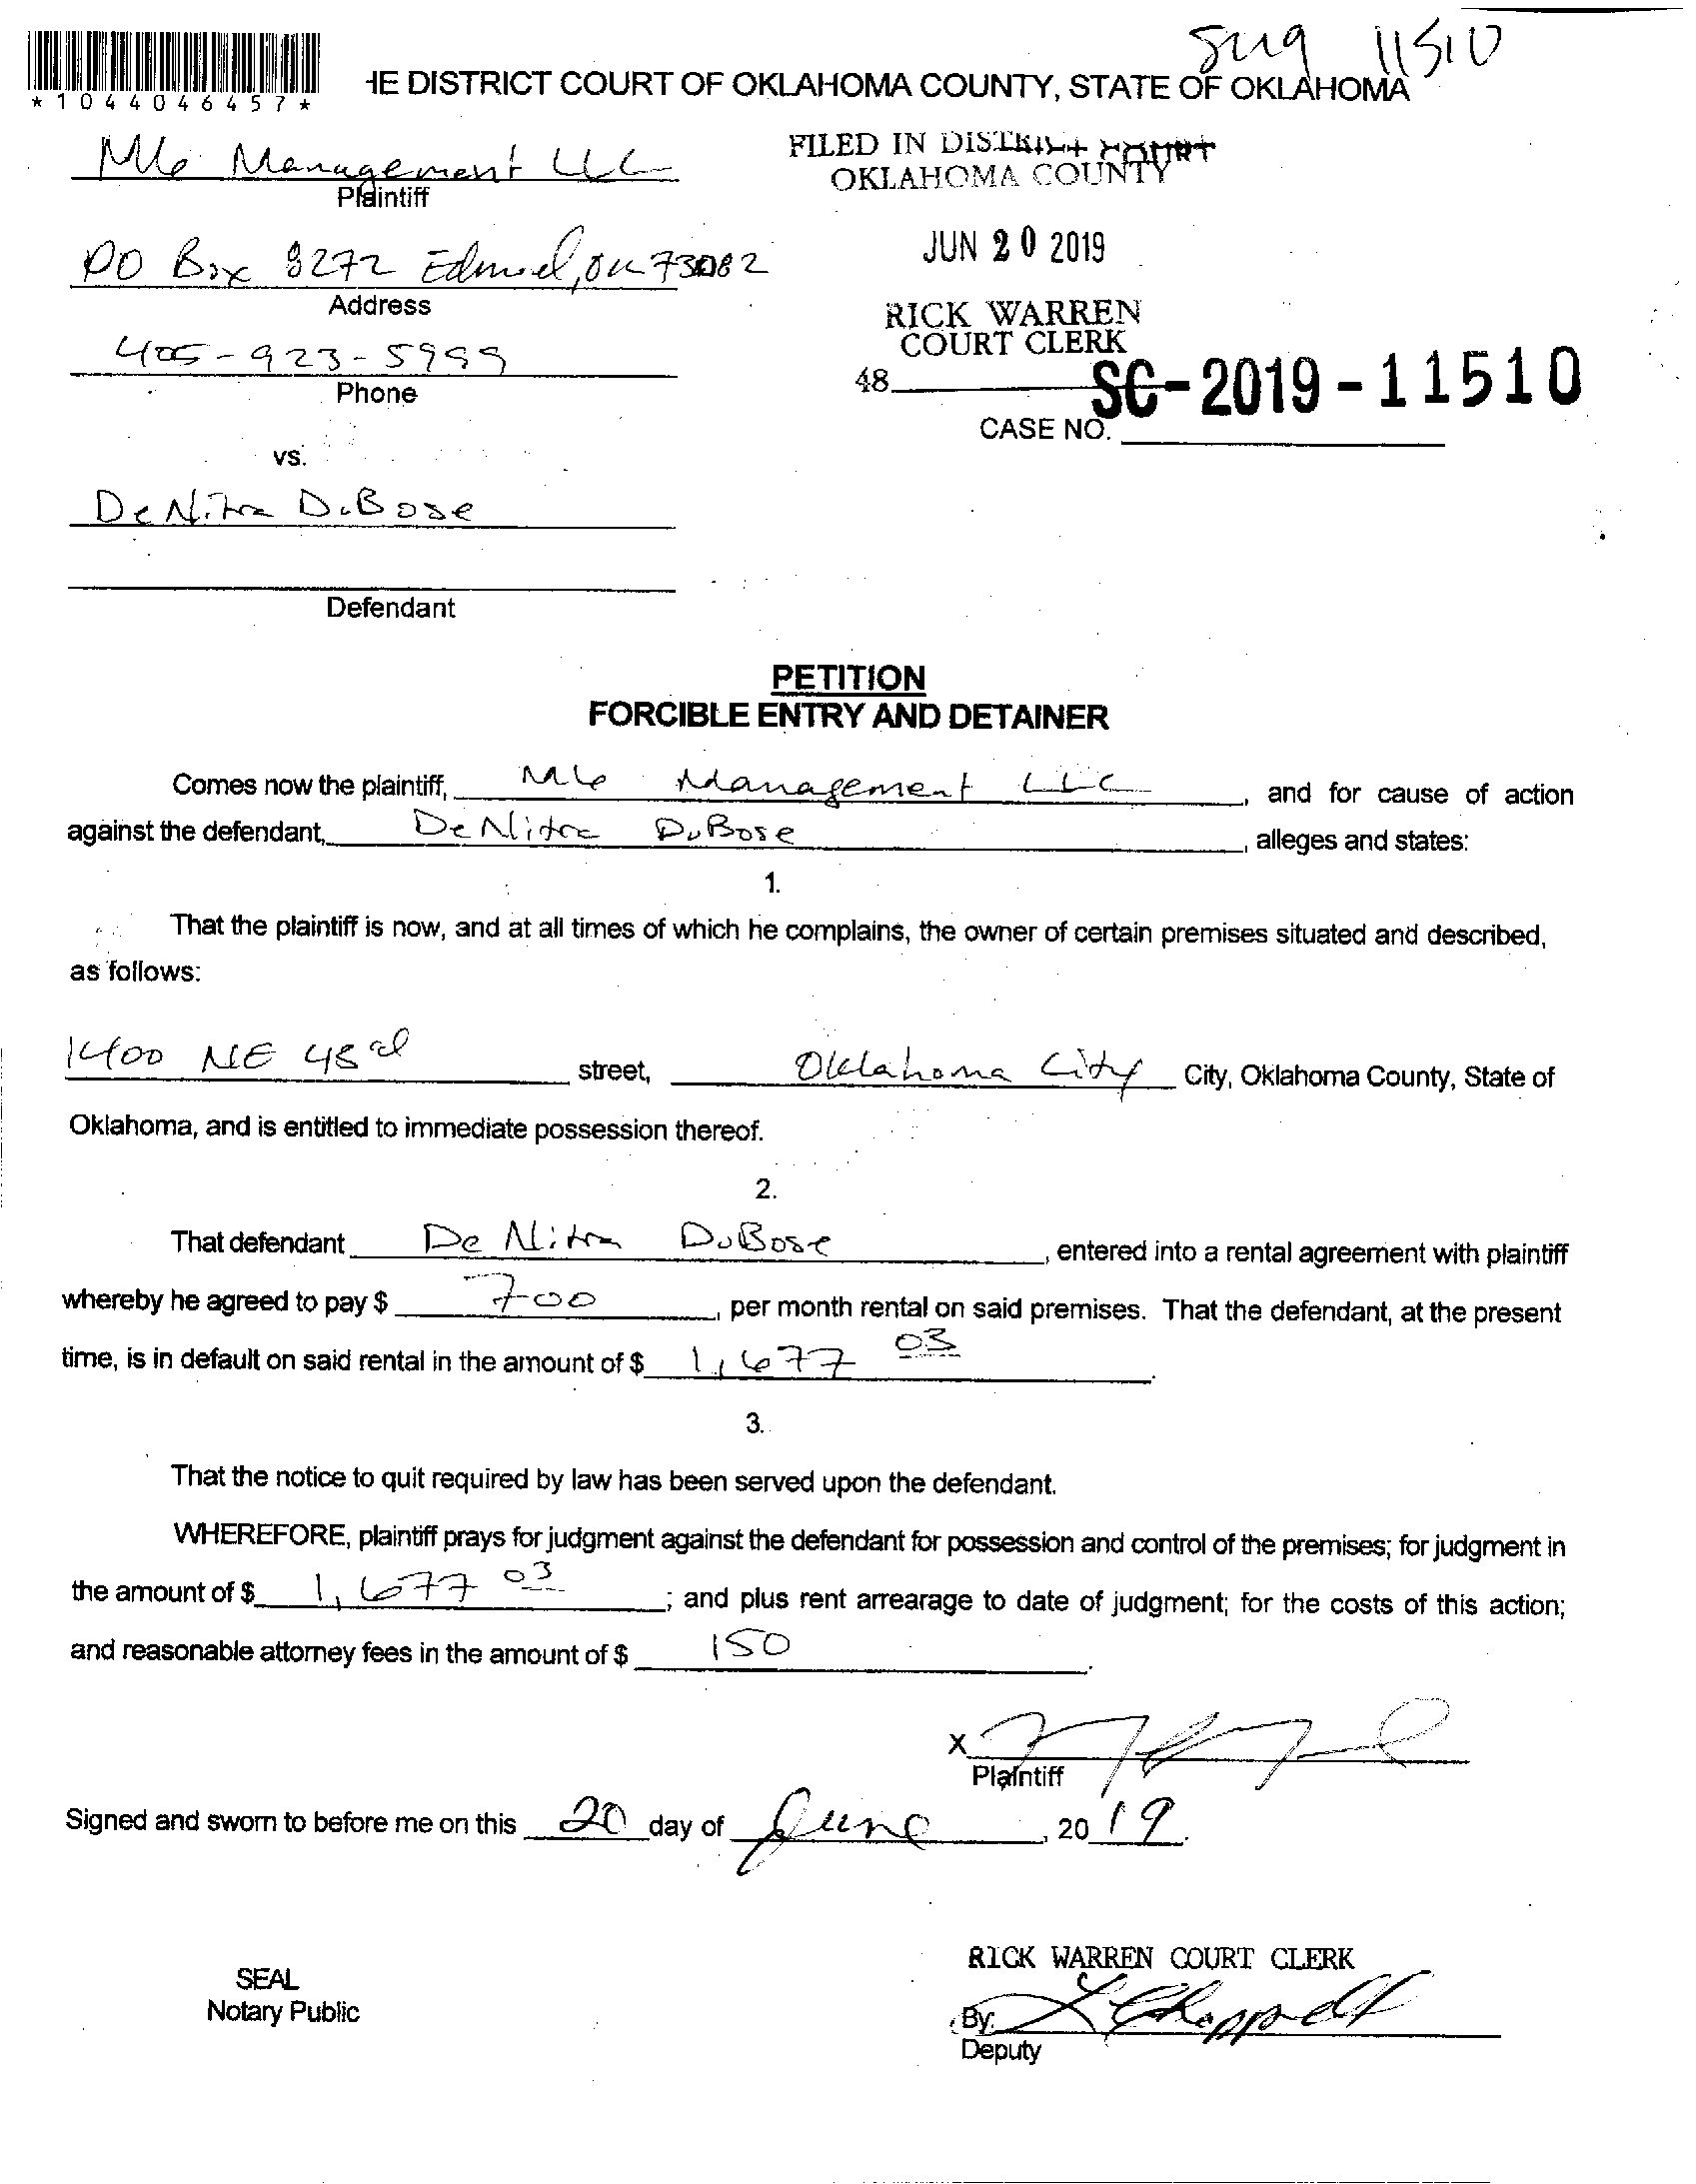 SM9 11510
*1044046457*
HE DISTRICT COURT OF OKLAHOMA COUNTY, STATE OF OKLAHOMA
Management LLC
Plaintiff
FILED IN DISTRICT COURT
OKLAHOMA COUNTY
PO Box 8272 Edmond, OK 73082
Address
JUN 20 2019
RICK WARREN
COURT CLERK
405-923-5999
Phone
48
SC-2019-11510
CASE NO.
vs.
DeNitra DuBose
Defendant
PETITION
FORCIBLE ENTRY AND DETAINER
Comes now the plaintiff, Management LLC, and for cause of action
against the defendant, DeNitra DuBose, alleges and states:
1.
That the plaintiff is now, and at all times of which he complains, the owner of certain premises situated and described,
as follows:
1400 NE street, Oklahoma City City, Oklahoma County, State of
Oklahoma, and is entitled to immediate possession thereof.
2.
That defendant DeNitra DuBose, entered into a rental agreement with plaintiff
whereby he agreed to pay $ 700, per month rental on said premises. That the defendant, at the present
time, is in default on said rental in the amount of $ 1,677 03.
3.
That the notice to quit required by law has been served upon the defendant.
WHEREFORE, plaintiff prays for judgment against the defendant for possession and control of the premises; for judgment in
the amount of $ 1,677 03; and plus rent arrearage to date of judgment; for the costs of this action;
and reasonable attorney fees in the amount of $ 150.
X
Plaintiff
Signed and sworn to before me on this 20 day of June, 2019.
SEAL
Notary Public
RICK WARREN COURT CLERK
By: L Chappell
Deputy